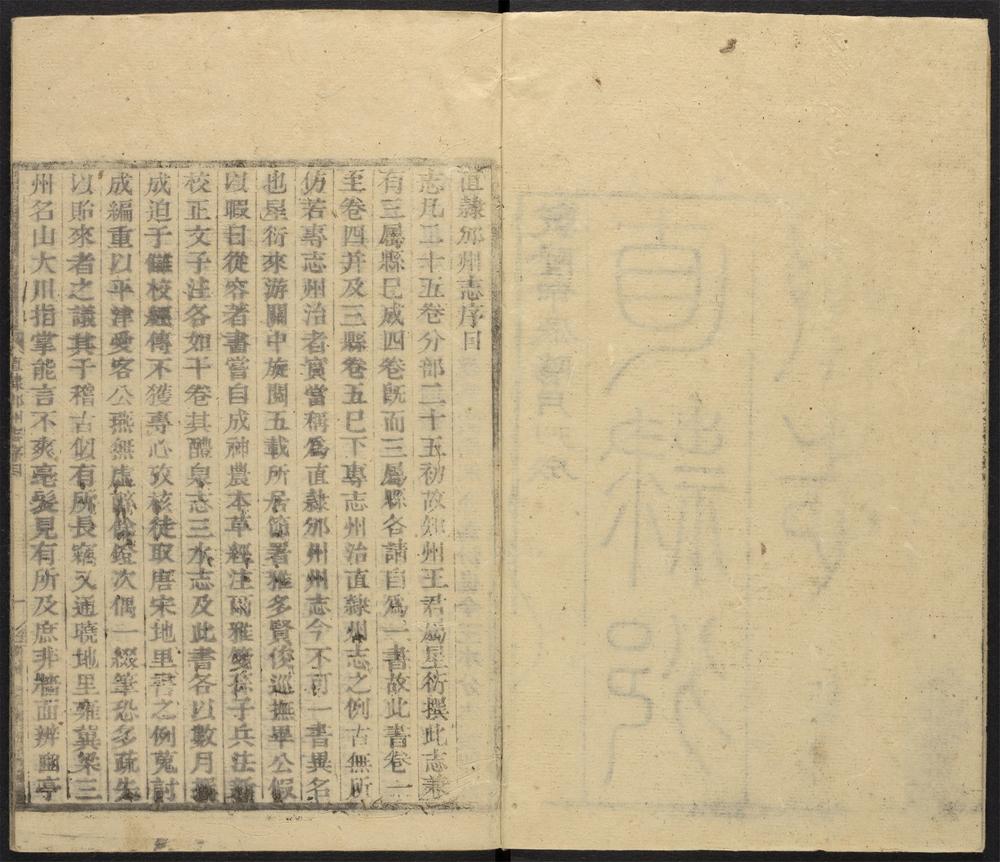 直隸邠州志序目
志凡二十五卷分部二十五初故知州王君屬星衍撰此志兼
有三屬縣已成四卷既而三屬縣各請自爲一書故此書卷一
至卷四并及三縣卷五巳下專志州治直隸州志之例古無所
仿若專志州治者實當稱爲直隸邠州州志今不可一書異名
也星衍來游關中旋閱五載所居節署雅多賢俊巡撫畢公假
以暇日從容著書嘗自成神農本草經注爾雅箋孫子兵法新
校正文子注各如干卷其醴泉志三水志及此書各以數月
成迫于讎校經傳不獲專心攷核徒取唐宋地里書之例蒐討
成編重以平津愛客公燕無虛餘鐙次偶一綴筆恐多疏失
以貽來者之議其于稽古似有所長竊又通曉地里雍冀梁三
州名山大川指掌能言不爽毫髮見有所及庶非牆面辨豳亭
直隸邠州志序目
一